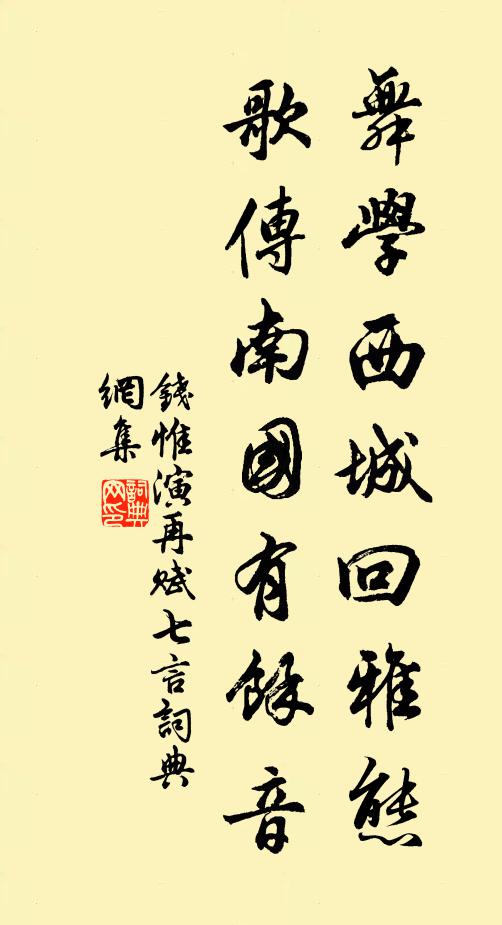 舞學西城回雅態
歌傳南國有餘音
錢惟演再赋七言詞典
網集
詞典網印